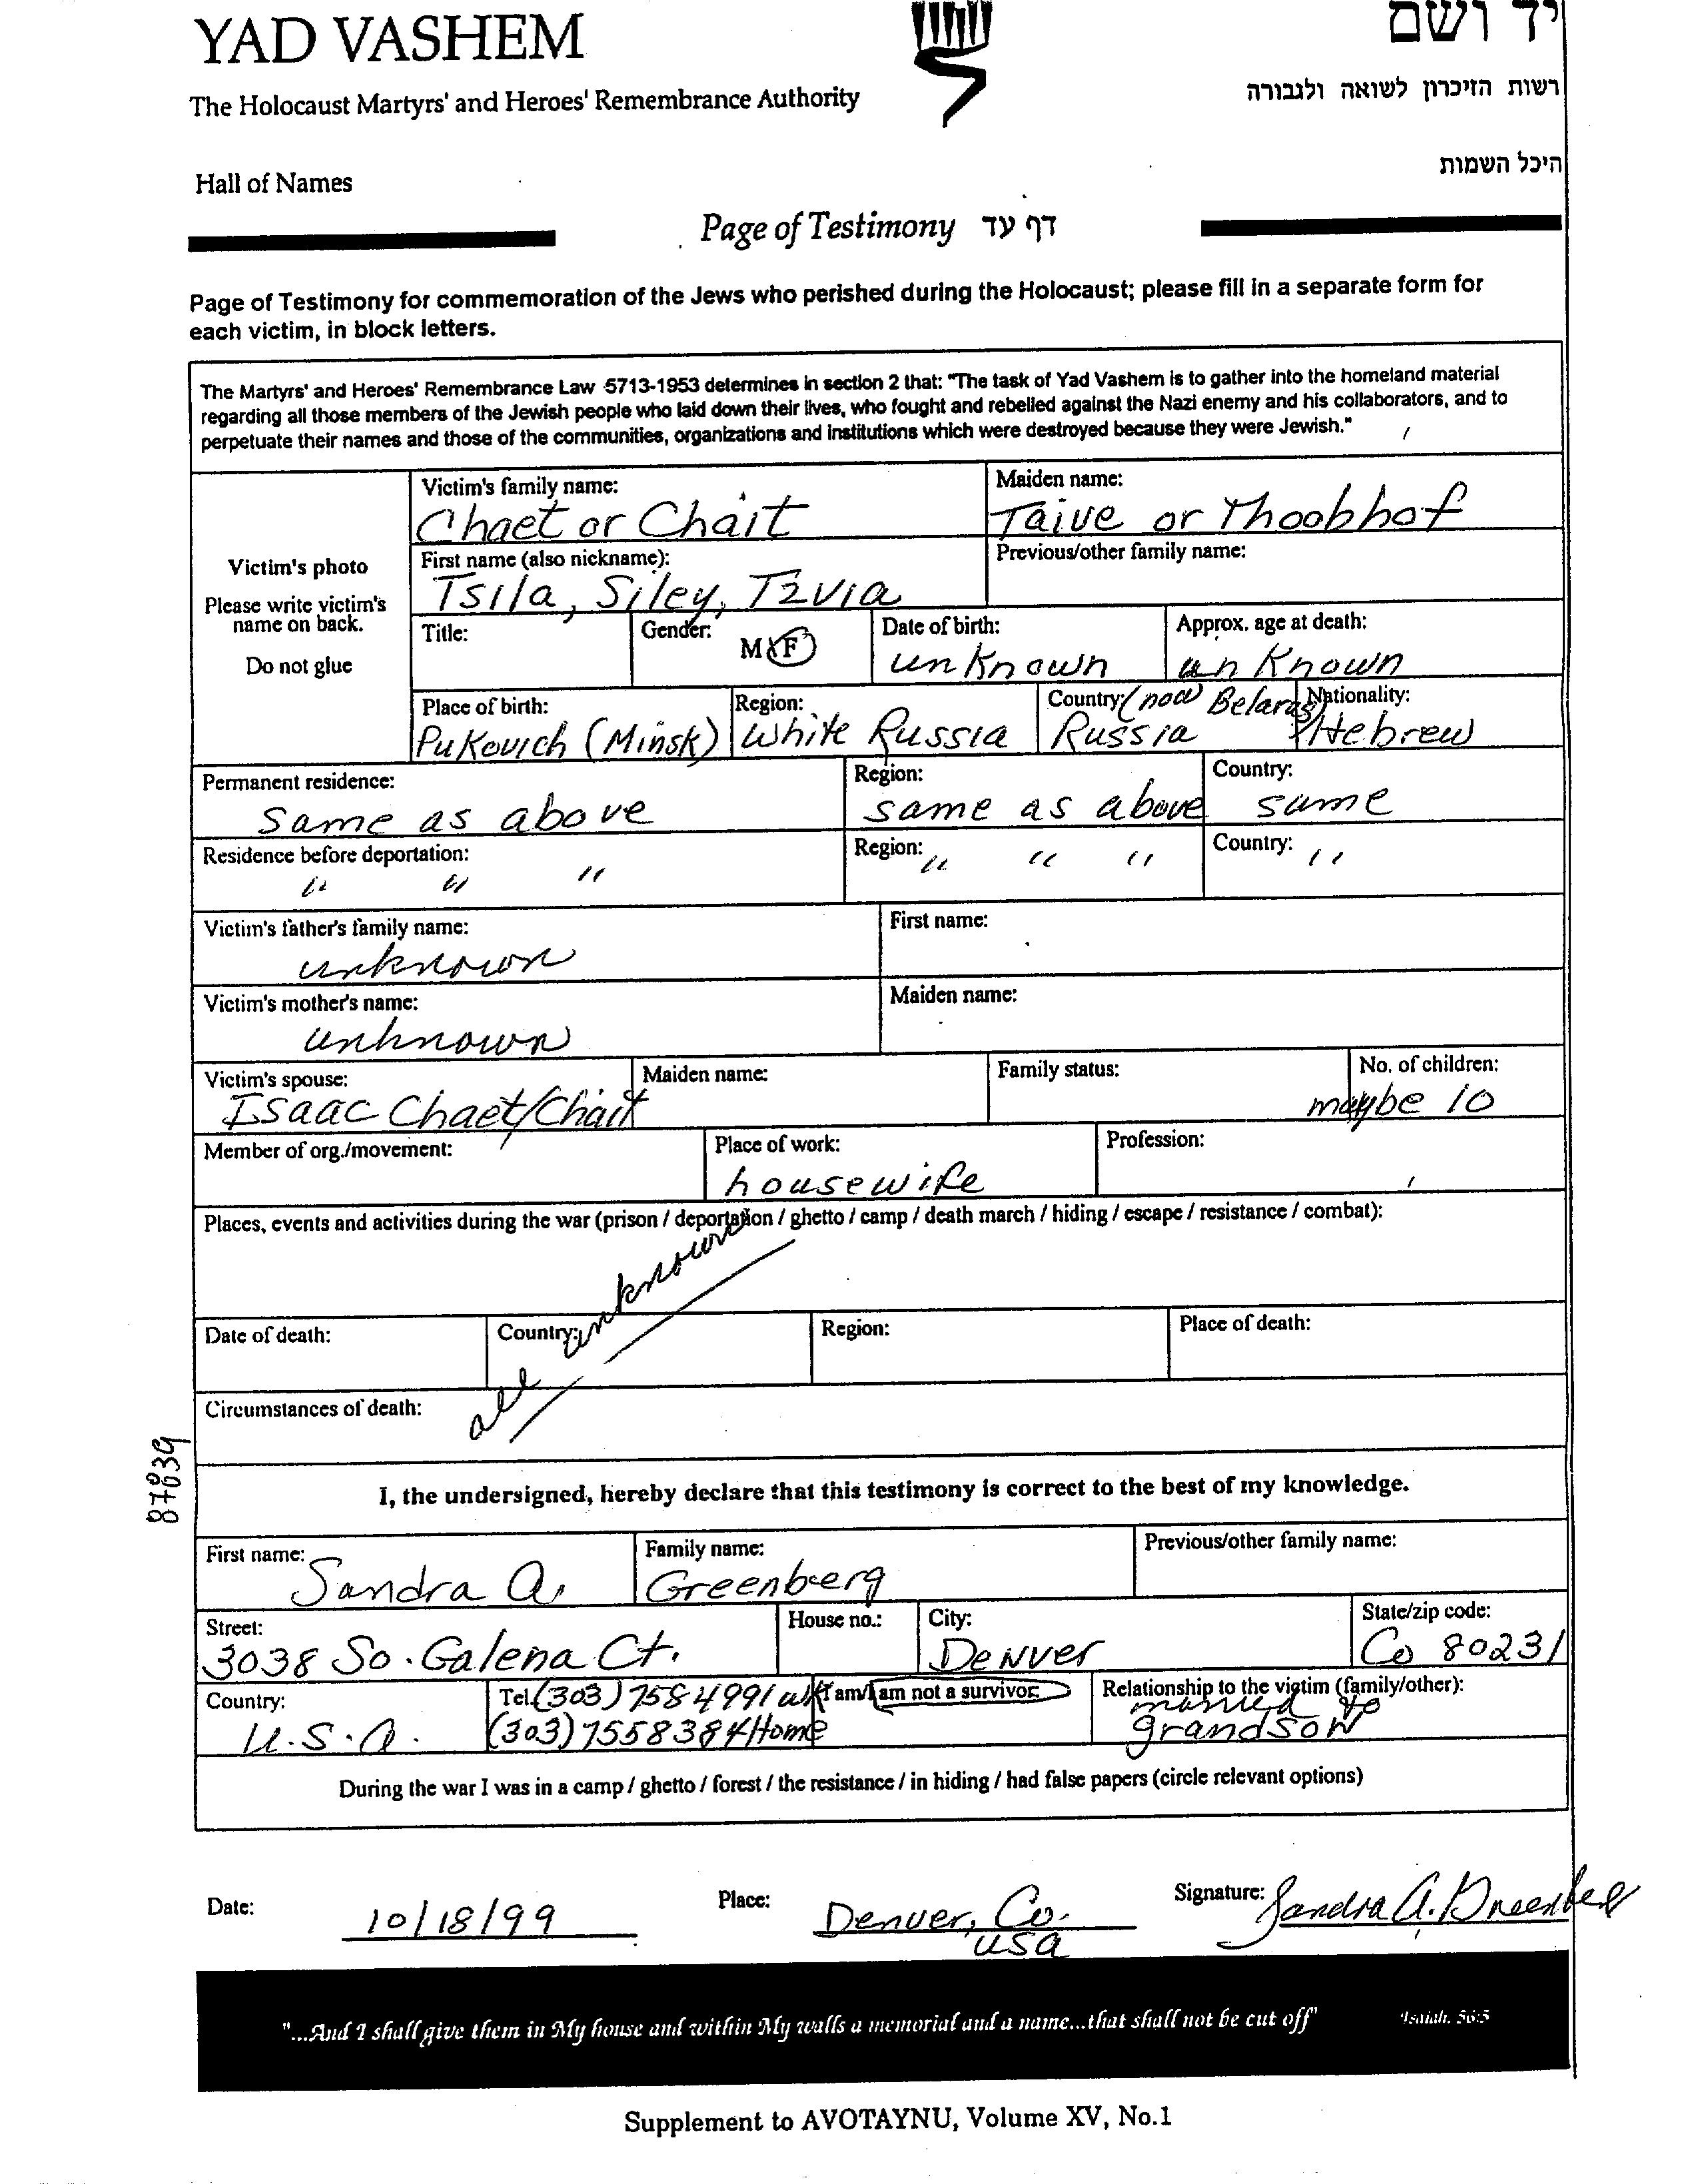 YAD VASHEM
יד ושם
The Holocaust Martyrs' and Heroes' Remembrance Authority
רשות הזיכרון לשואה ולגבורה
Hall of Names
היכל השמות
Page of Testimony דף עד
Page of Testimony for commemoration of the Jews who perished during the Holocaust; please fill in a separate form for
each victim, in block letters.
The Martyrs' and Heroes' Remembrance Law 5713-1953 determines in section 2 that: "The task of Yad Vashem is to gather into the homeland material
regarding all those members of the Jewish people who laid down their lives, who fought and rebelled against the Nazi enemy and his collaborators, and to
perpetuate their names and those of the communities, organizations and institutions which were destroyed because they were Jewish."
Victim's photo
Please write victim's
name on back.
Do not glue
Victim's family name: Maiden name:
Chaet or Chait Taive or Thoobhof
First name (also nickname): Previous/other family name:
Tsila, Siley, Tzvia
Title: Gender: M F Date of birth: Approx. age at death:
unknown unknown
Place of birth: Region: Country: (now Belarus) Nationality:
Pukovich (Minsk) White Russia Russia Hebrew
Permanent residence: Region: Country:
Same as above same as above same
Residence before deportation: Region: Country:
" " " " " " "
Victim's father's family name: First name:
unknown
Victim's mother's name: Maiden name:
unknown
Victim's spouse: Maiden name: Family status: No. of children:
Isaac Chaet/Chait maybe 10
Member of org./movement: Place of work: Profession:
housewife
Places, events and activities during the war (prison / deportation / ghetto / camp / death march / hiding / escape / resistance / combat):
all unknown
Date of death: Country: Region: Place of death:
Circumstances of death:
87839
I, the undersigned, hereby declare that this testimony is correct to the best of my knowledge.
First name: Family name: Previous/other family name:
Sandra A. Greenberg
Street: House no.: City: State/zip code:
3038 So. Galena Ct. Denver Co 80231
Country: Tel. (303) 7584991 wk I am/I am not a survivor Relationship to the victim (family/other):
U.S.A. (303) 7558384 Home married to
grandson
During the war I was in a camp / ghetto / forest / the resistance / in hiding / had false papers (circle relevant options)
Date: 10/18/99 Place: Denver, Co. Signature: Sandra A. Greenberg
USA
"...And I shall give them in My house and within My walls a memorial and a name...that shall not be cut off" Isaiah. 56:5
Supplement to AVOTAYNU, Volume XV, No.1